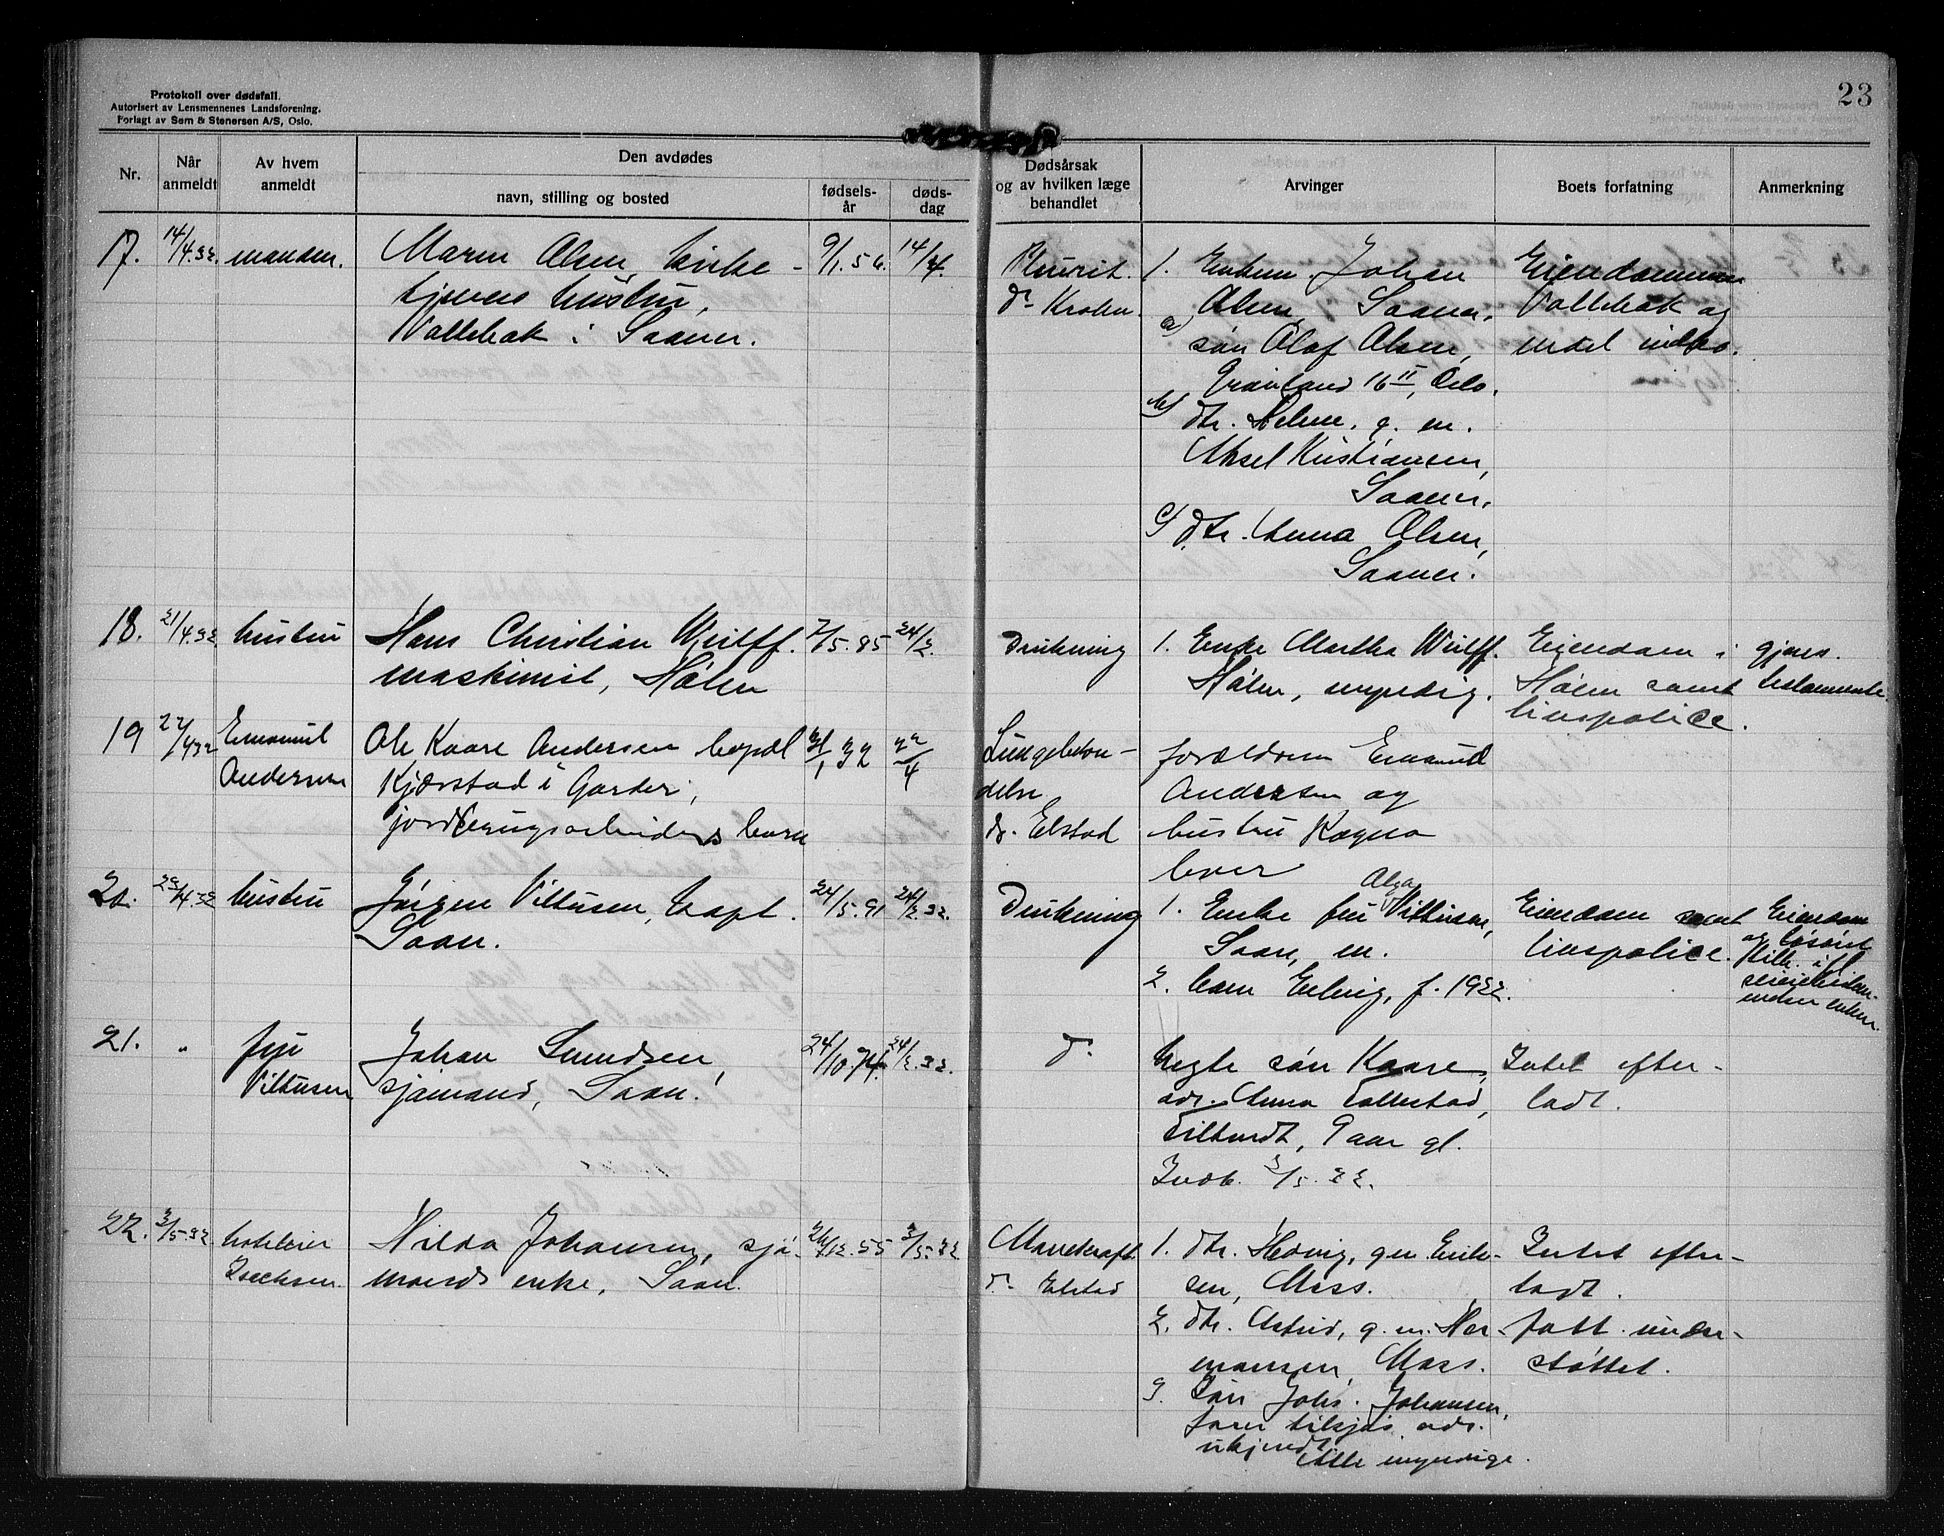 Protokoll over dødsfall.
Autorisert av Lensmennenes Landsforening.
Forlagt av Sem & Stenersen A/S, Oslo.
23
Nr.
Når anmeldt
Av hvem anmeldt
Den avdødes
navn, stilling og bosted
fødsels-år
døds-dag
Dødsårsak og av hvilken læge behandlet
Arvinger
Boets forfatning
Anmerkning
17. 14/4.32. manden.
Maren Olsen, kirke-
tjeners hustru,
Vallebak i Saaner.
9/1.56. 14/4.
Pleurit.
dr Krohn.
1. Enkem. Johan
Olsen, Saaner.
a) søn Olaf Olsen,
Grønland 16 II, Oslo.
b) dtr. Helene, g. m.
Aksel Kristiansen,
Saaner.
c) dtr. Anna Olsen,
Saaner.
Eiendommen
Vallebak og
endel indbo.
18. 21/4.32. hustru
Hans Christian Wulff.
maskinist, Hølen
2/5.85 24/2.
Drukning
1. Enke Martha Wulff.
Hølen, myndig.
Eiendom i
Hølen samt
livspolice.
gjens.
testamente
19 22/4 32 Emanuel
Andersen
Ole Kaare Andersen bopæl
Kjærstad i Garder,
jordbrugsarbeiders barn
31/1 32 22/4
Lungebeten-
delse
dr. Elstad
forældrene Emanuel
Andersen og
hustru Ragna
lever
20. 29/4.32 hustru
Jørgen Viltusen, kapt.
Saan.
24/5.91 24/2.32.
Drukning
1. Enke fru Olga Viltusen,
Saan, m.
2. barn Erling, f. 1922.
Eiendom samt
livspolice.
Eiendom
og løsøre
tilh. ifl.
enken.
21. " fru
Viltusen
Johan Sundsen,
sjømand, Saan.
24/10.74. 24/2.32.
do
uegte søn Kaare,
adr. Anna Tollefstad,
9 aar gl.
Indb. 3/5.32.
Intet efter-
ladt.
22. 3/5.32 hoteleier
Isachsen.
Hilda Johansen, sjø-
mands enke, Saan.
26/12.55 3/5.32
Marekraft
dr Elstad
1. dtr. Hedvig, gm Erik-
sen, Moss.
2. dtr. Astrid, g. m. Her-
mansen, Moss.
3. Søn Johs. Johansen,
farer tilsjøs, adr.
ukjendt.
Alle myndige.
Intet efter-
ladt.
fatt. under-
støttet.